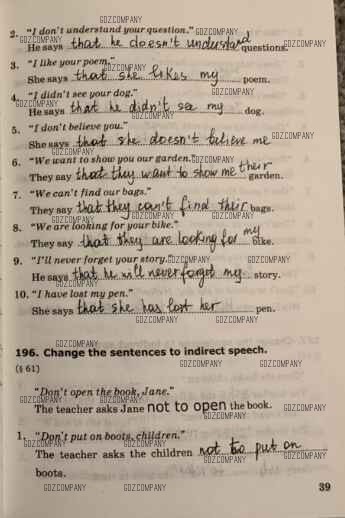 GDZCOMPANY
2. "I don't understand your question." GDZCOMPANY
He says that he doesn't understand questions. GDZCOMPANY
GDZCOMPANY
3. "I like your poem." GDZCOMPANY
She says that she likes my poem.
GDZCOMPANY
4. "I didn't see your dog." GDZCOMPANY
GDZCOMPANY
He says that he didn't see my dog.
GDZCOMPANY
5. "I don't believe you."
She says that she doesn't believe me GDZCOMPANY
GDZCOMPANY
6. "We want to show you our garden." GDZCOMPANY
GDZCOMPANY
They say that they want to show me their garden.
GDZCOMPANY
7. "We can't find our bags."
They say that they can't find their bags.
GDZCOMPANY GDZCOMPANY
8. "We are looking for your bike."
GDZCOMPANY
They say that they are looking for my bike.
9. "I'll never forget your story." GDZCOMPANY GDZCOMPANY
GDZCOMPANY
He says that he will never forget my story.
GDZCOMPANY GDZCOMPANY
10. "I have lost my pen."
She says that she has lost her pen.
GDZCOMPANY GDZCOMPANY
GDZCOMPANY
196. Change the sentences to indirect speech.
(§ 61) GDZCOMPANY GDZCOMPANY
"Don't open the book, Jane."
GDZCOMPANY GDZCOMPANY
The teacher asks Jane not to open the book. GDZCOMPANY
1. "Don't put on boots, children."
GDZCOMPANY GDZCOMPANY
The teacher asks the children not to put on
GDZCOMPANY
boots.
GDZCOMPANY GDZCOMPANY
39